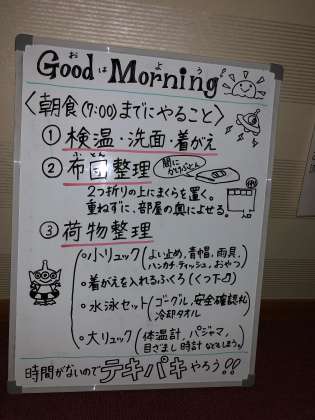 おはよう
Good Morning
〈朝食(7:00)までにやること〉
① 検温・洗面・着がえ
② 布団整理
間にかけぶとん
2つ折りの上にまくらを置く。
重ねずに、部屋の奥によせる。
③ 荷物整理
・小リュック(よい止め、青帽、雨具、
ハンカチ・ティッシュ、おやつ)
・着がえを入れるふくろ(くつ下♪)
・水泳セット(ゴーグル、安全確認札
冷却タオル)
・大リュック(体温計、パジャマ、
目ざまし時計などもしまう。)
時間がないのでテキパキやろう!!